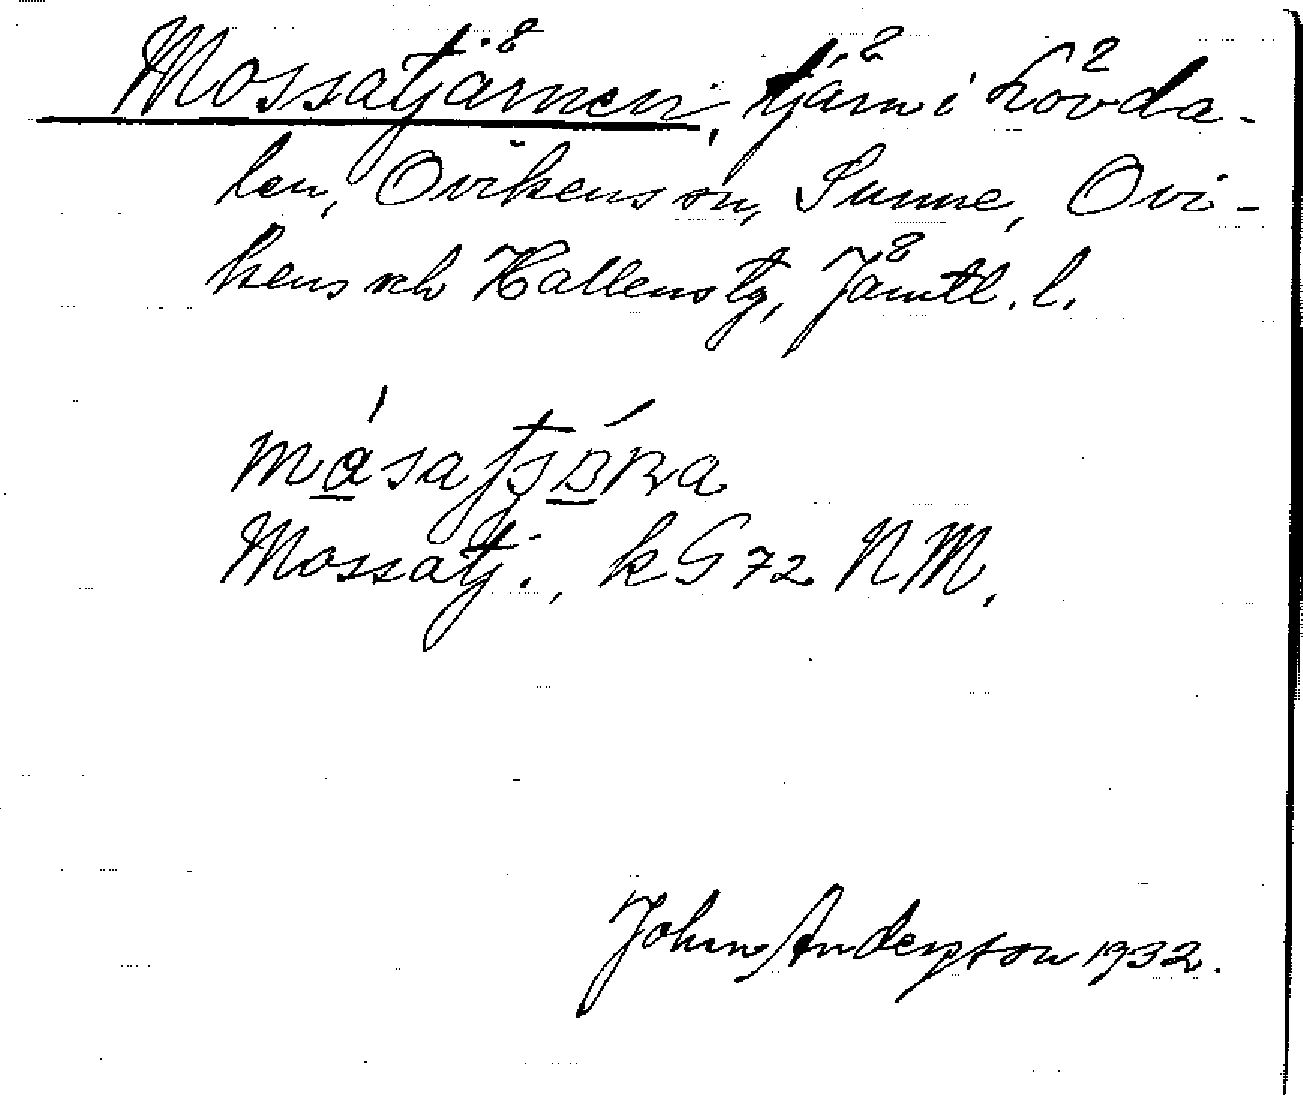 Mossatjärnen, tjärn i Lövda-
len, Ovikens sn, Sunne, Ovi-
kens och Hallens tg, Jämtl. l.
Mossatj., kG72 NM.
John Andersson 1932.